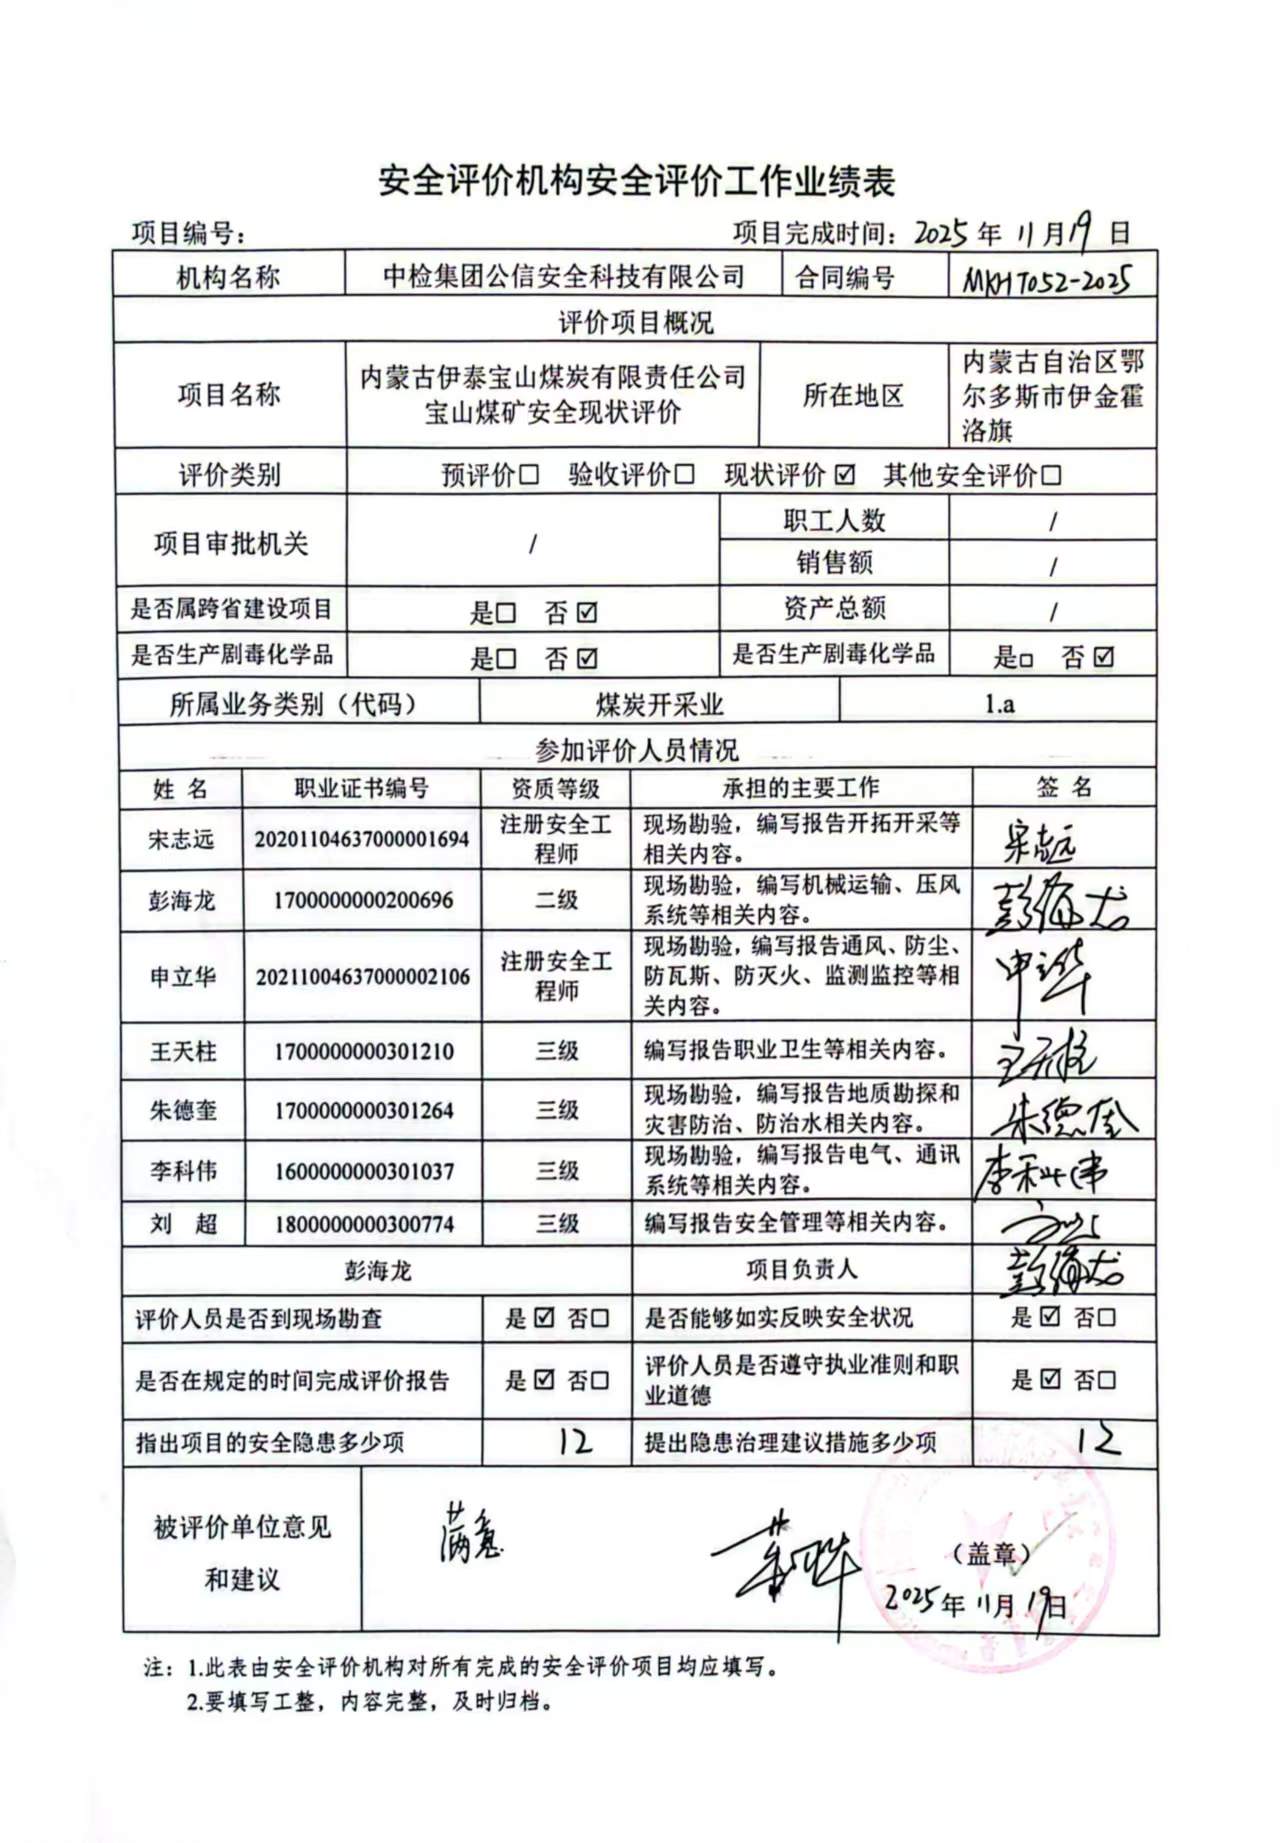 安全评价机构安全评价工作业绩表
项目编号： 项目完成时间：2025年11月19日
机构名称 中检集团公信安全科技有限公司 合同编号 MKHT052-2025
评价项目概况
项目名称 内蒙古伊泰宝山煤炭有限责任公司 所在地区 内蒙古自治区鄂
宝山煤矿安全现状评价 尔多斯市伊金霍
洛旗
评价类别 预评价□ 验收评价□ 现状评价☑ 其他安全评价□
项目审批机关 / 职工人数 /
销售额 /
是否属跨省建设项目 是□ 否☑ 资产总额 /
是否生产剧毒化学品 是□ 否☑ 是否生产剧毒化学品 是□ 否☑
所属业务类别（代码） 煤炭开采业 1.a
参加评价人员情况
姓 名 职业证书编号 资质等级 承担的主要工作 签 名
宋志远 20201104637000001694 注册安全工 现场勘验，编写报告开拓开采等 宋志远
程师 相关内容。
彭海龙 1700000000200696 二级 现场勘验，编写机械运输、压风 彭海龙
系统等相关内容。
申立华 20211004637000002106 注册安全工 现场勘验，编写报告通风、防尘、 申立华
程师 防瓦斯、防灭火、监测监控等相
关内容。
王天柱 1700000000301210 三级 编写报告职业卫生等相关内容。 王天柱
朱德奎 1700000000301264 三级 现场勘验，编写报告地质勘探和 朱德奎
灾害防治、防治水相关内容。
李科伟 1600000000301037 三级 现场勘验，编写报告电气、通讯 李科伟
系统等相关内容。
刘 超 1800000000300774 三级 编写报告安全管理等相关内容。 刘超
彭海龙 项目负责人 彭海龙
评价人员是否到现场勘查 是☑ 否□ 是否能够如实反映安全状况 是☑ 否□
是否在规定的时间完成评价报告 是☑ 否□ 评价人员是否遵守执业准则和职 是☑ 否□
业道德
指出项目的安全隐患多少项 12 提出隐患治理建议措施多少项 12
被评价单位意见 满意
和建议 （盖章）
2025年11月19日
注：1.此表由安全评价机构对所有完成的安全评价项目均应填写。
2.要填写工整，内容完整，及时归档。